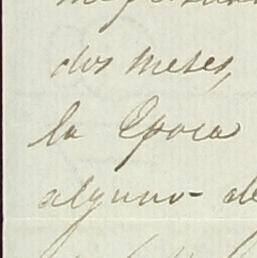 dos meses,
la Epoca
alguno- de